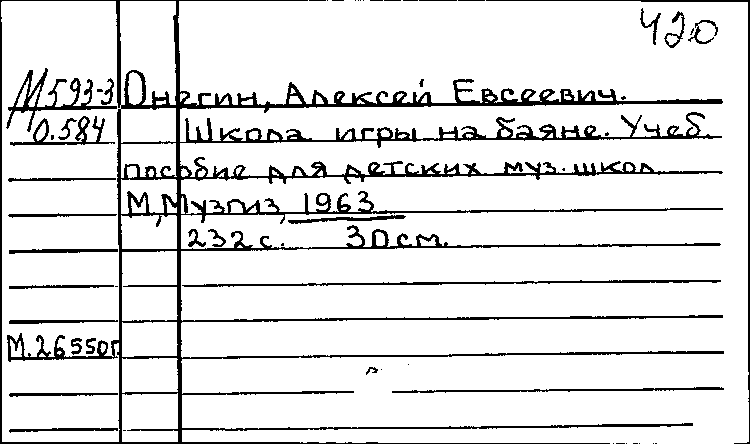 420
М593-3 Онегин, Алексей Евсеевич.
0.584 Школа игры на баяне. Учеб.
пособие для детских муз. школ
М, Музгиз, 1963
232 с. 30 см.
М.26550г.